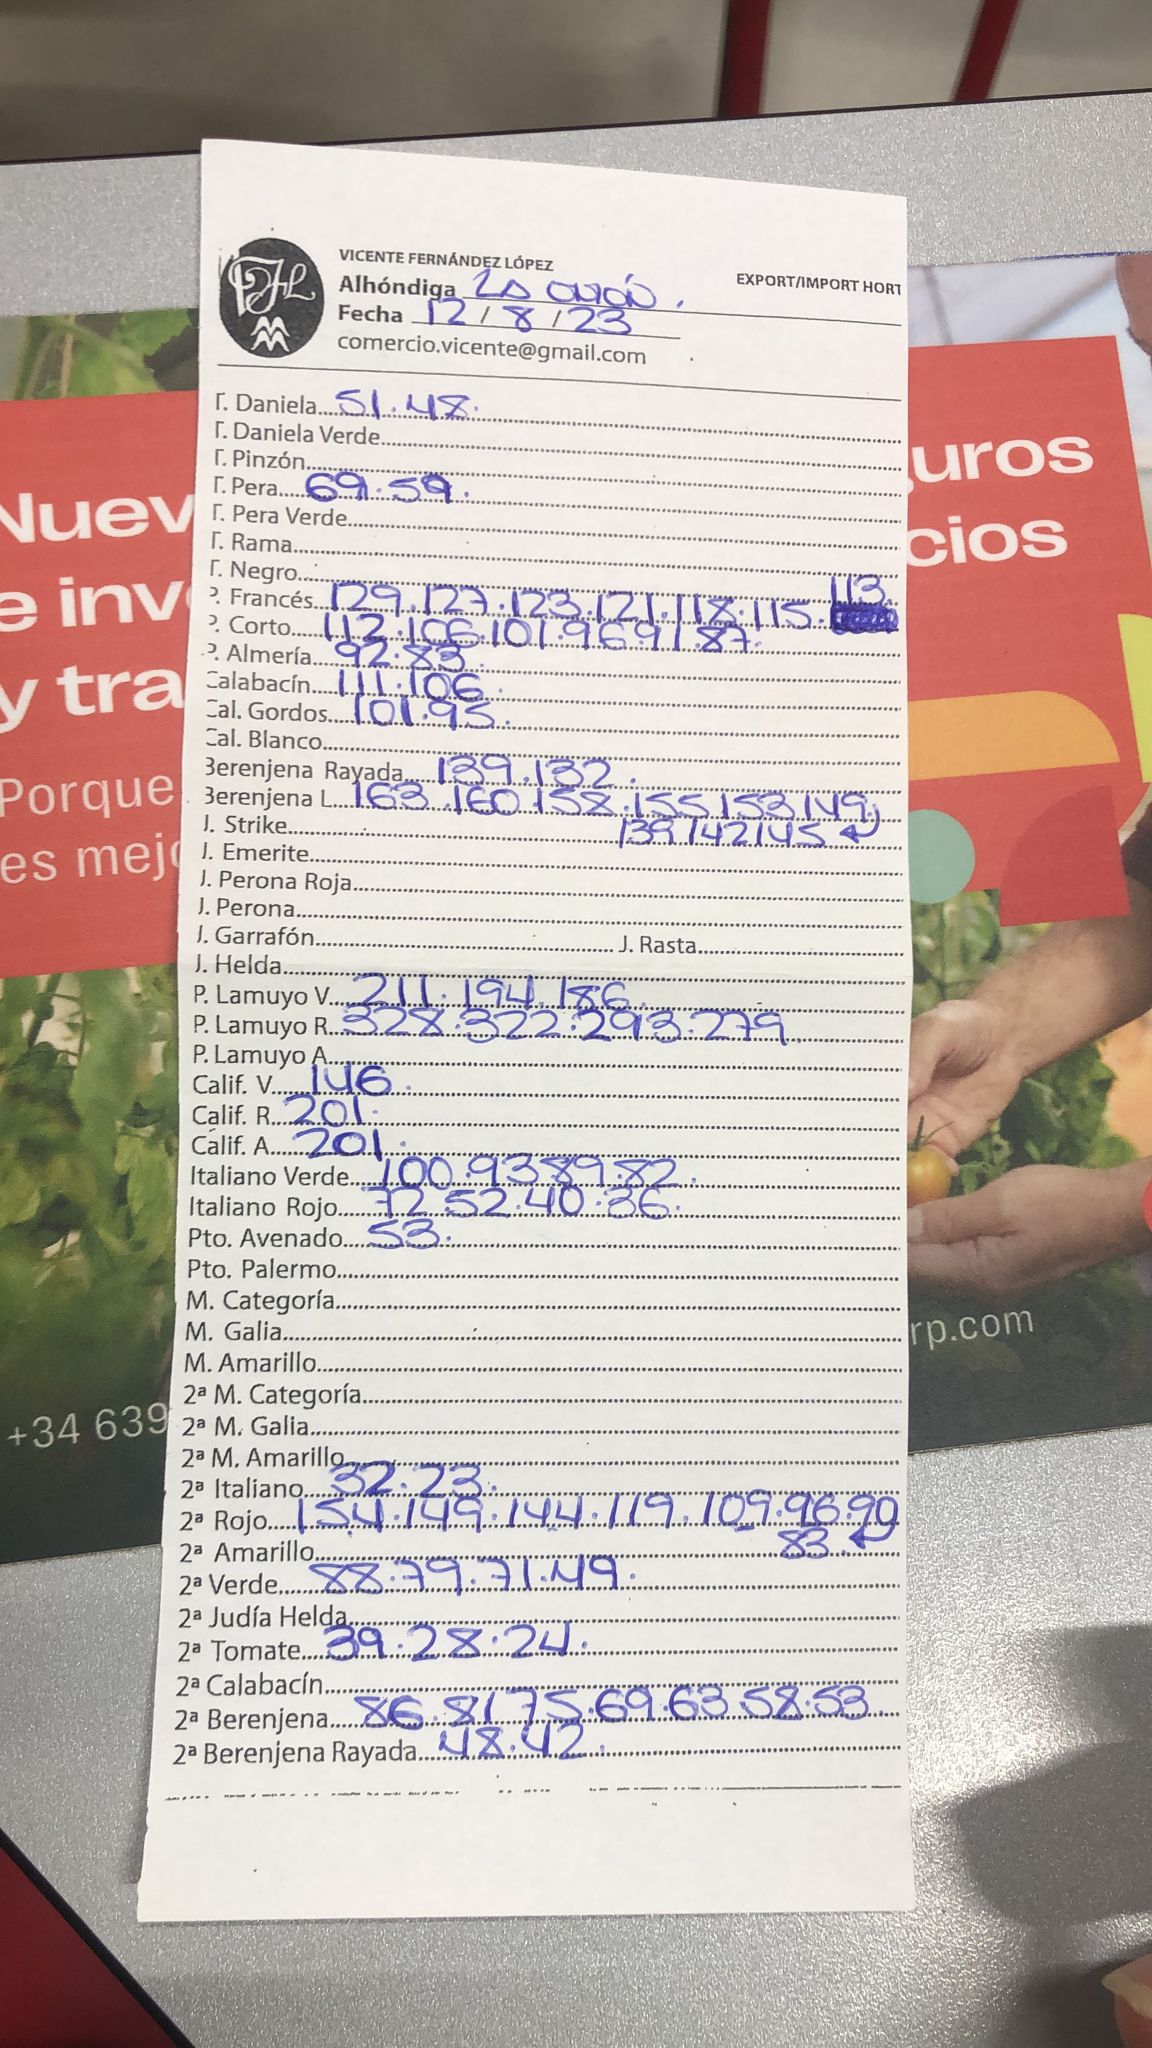 VICENTE FERNÁNDEZ LÓPEZ
EXPORT/IMPORT HORT
Alhóndiga La Unión.
Fecha 12 / 8 / 23
comercio.vicente@gmail.com
T. Daniela....51.48.
T. Daniela Verde
T. Pinzón
T. Pera....69.59.
T. Pera Verde
T. Rama
T. Negro
P. Francés...129.127.123.121.118.115.113.
P. Corto...112.106.101.96.91.87.
P. Almería...92.83.
Calabacín...111.106.
Cal. Gordos...101.95.
Cal. Blanco
Berenjena Rayada...139.132.
Berenjena L...163.160.158.155.153.149
J. Strike 139 142 145
J. Emerite
J. Perona Roja
J. Perona
J. Garrafón J. Rasta
J. Helda
P. Lamuyo V...211.194.186.
P. Lamuyo R...328.322.293.279.
P. Lamuyo A
Calif. V....146.
Calif. R...201.
Calif. A....201.
Italiano Verde...100.93.89.82.
Italiano Rojo...72.52.40.36.
Pto. Avenado...53.
Pto. Palermo
M. Categoría
M. Galia
M. Amarillo
2ª M. Categoría
2ª M. Galia
2ª M. Amarillo
2ª Italiano...32.23.
2ª Rojo...154.149.144.119.109.96.90
2ª Amarillo 83.
2ª Verde...88.79.71.49.
2ª Judía Helda
2ª Tomate...39.28.24.
2ª Calabacín
2ª Berenjena...86.81.75.69.63.58.53.
2ª Berenjena Rayada...48.42.
Nuev
e inv
y tra
Porque
es mejo
+34 639
uros
cios
rp.com